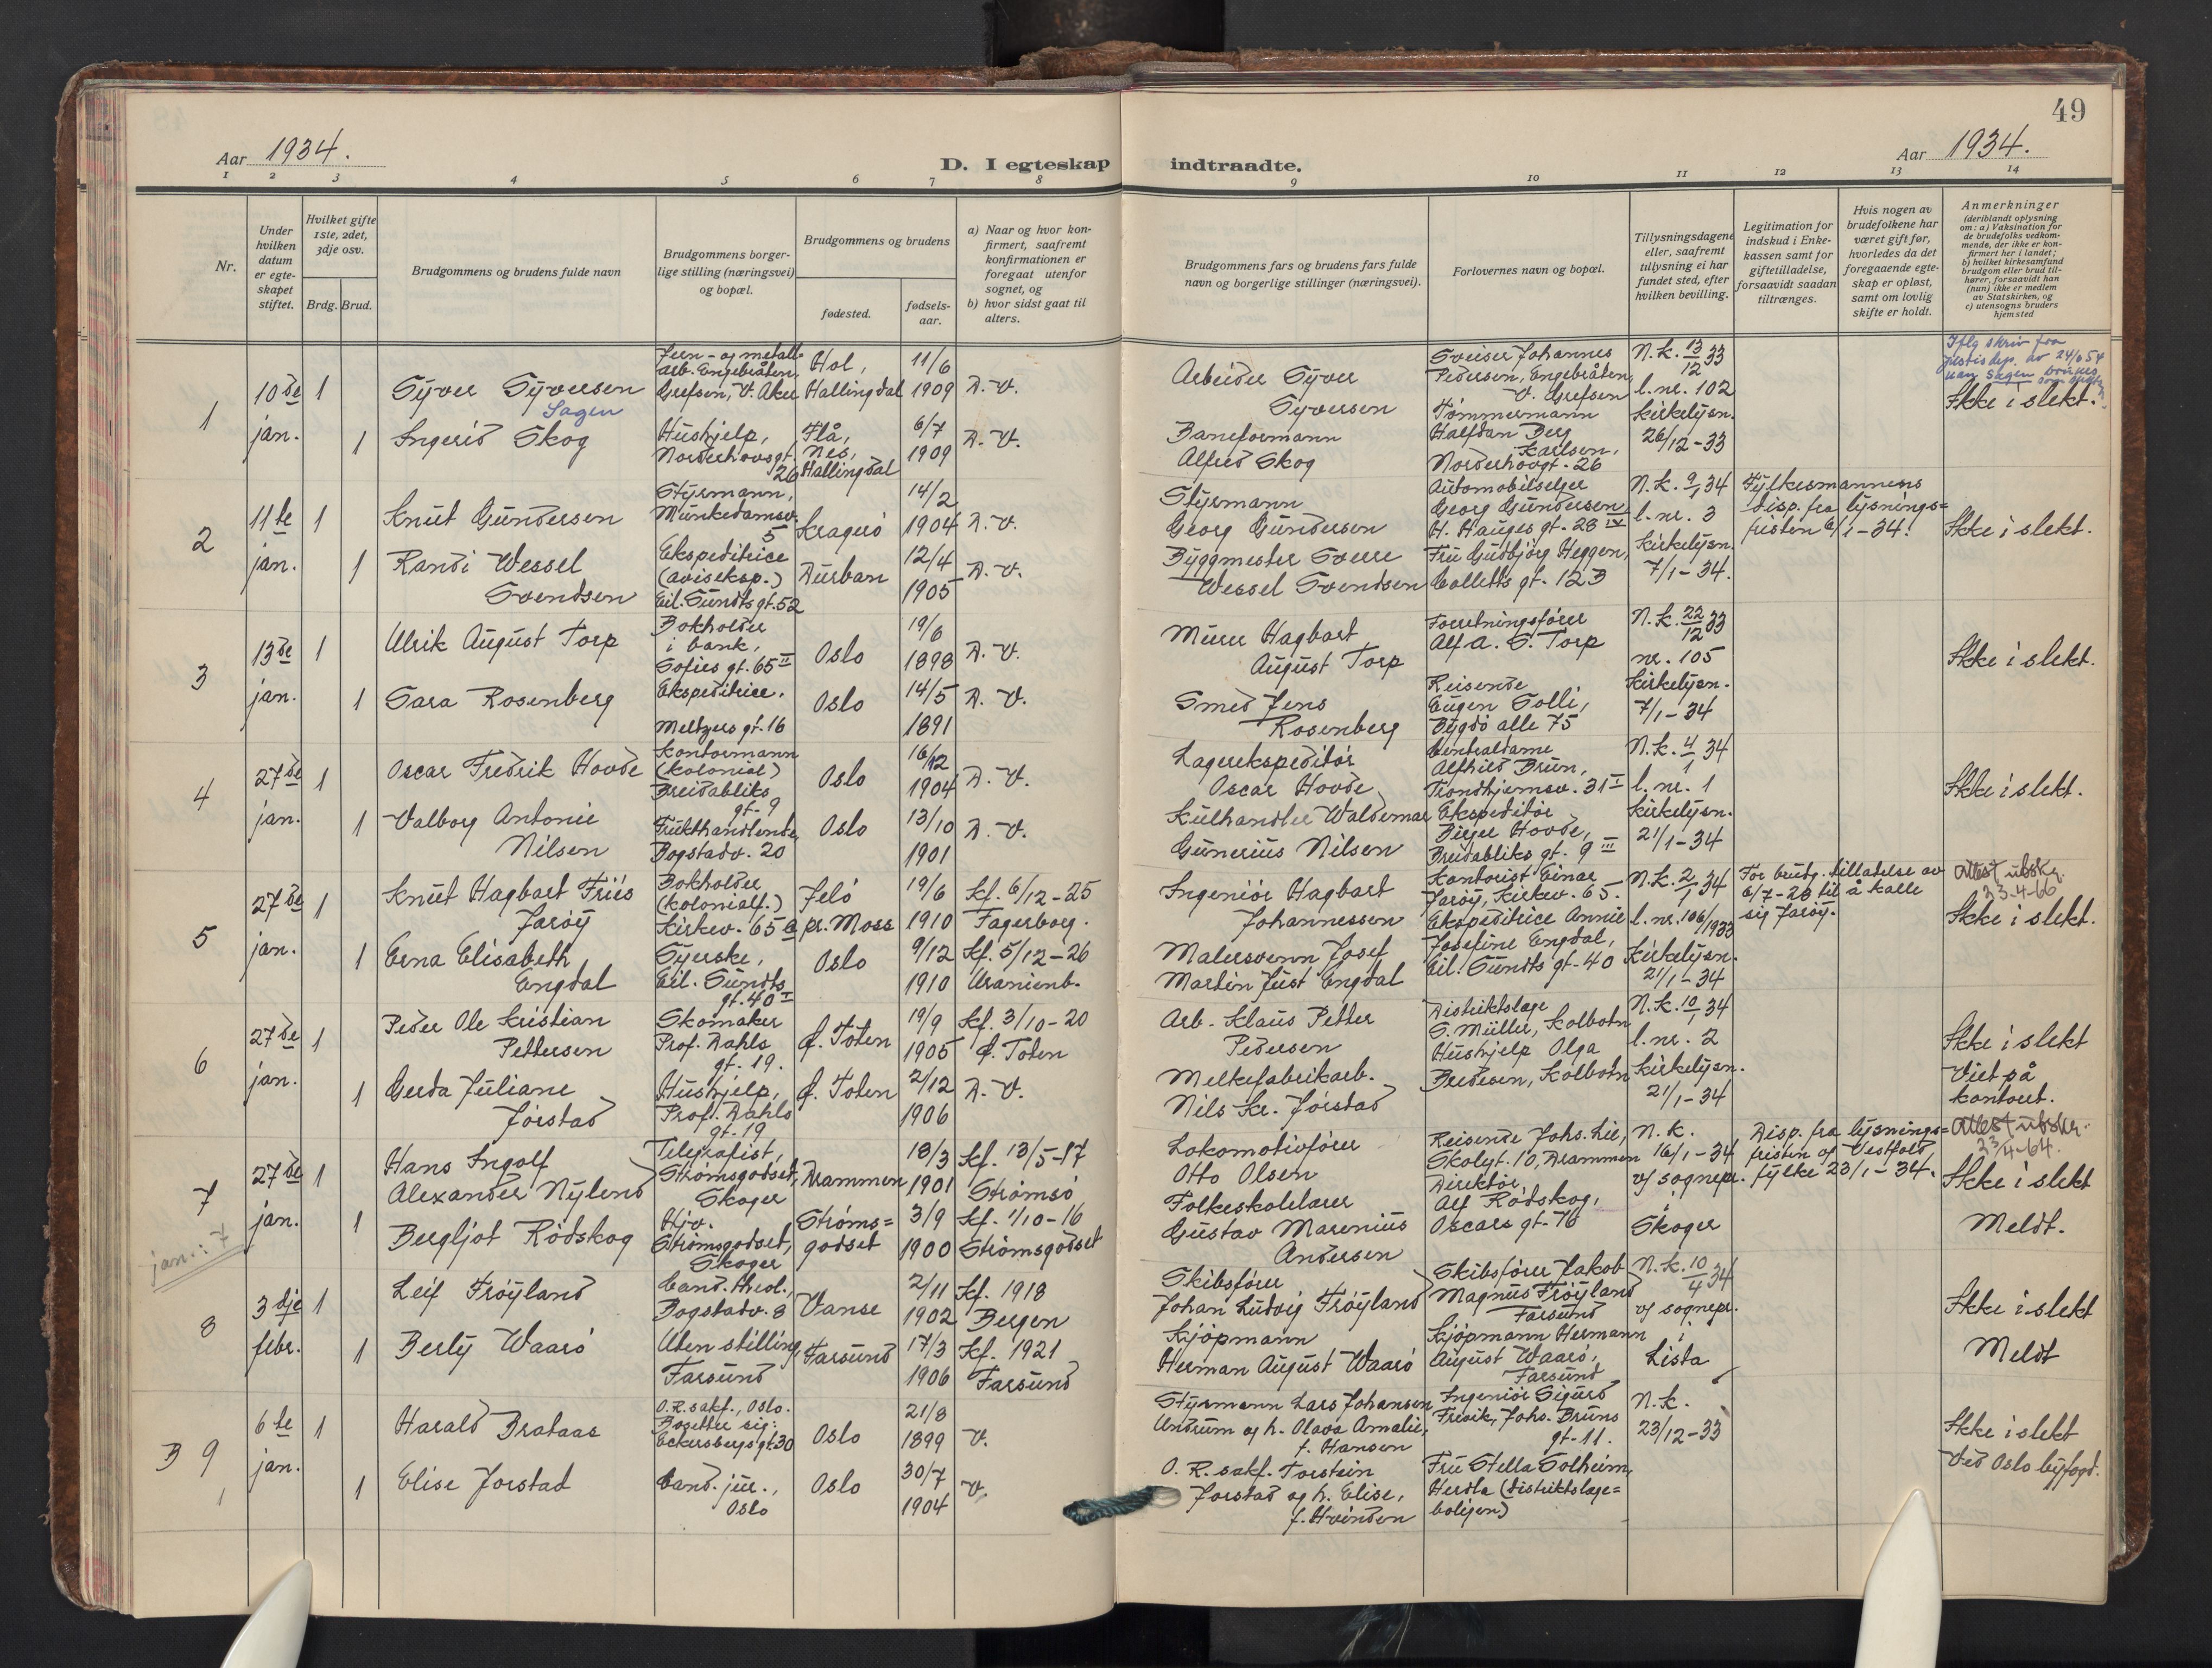 49
Aar 1934.
D. I egteskap indtraadte.
Aar 1934.
1 2 3 4 5 6 7 8 9 10 11 12 13 14
Nr.
Under hvilken datum er egteskapet stiftet.
Hvilket gifte 1ste, 2det, 3dje osv.
Brdg. Brud.
Brudgommens og brudens fulde navn
Brudgommens borgerlige stilling (næringsvei) og bopæl.
Brudgommens og brudens
fødested.
fødselsaar.
a) Naar og hvor konfirmert, saafremt konfirmationen er foregaat utenfor sognet, og
b) hvor sidst gaat til alters.
Brudgommens fars og brudens fars fulde navn og borgerlige stillinger (næringsvei).
Forlovernes navn og bopæl.
Tillysningsdagene eller, saafremt tillysning ei har fundet sted, efter hvilken bevilling.
Legitimation for indskud i Enkekassen samt for giftetilladelse, forsaavidt saadan tiltrænges.
Hvis nogen av brudefolkene har været gift før, hvorledes da det foregaaende egteskap er opløst, samt om lovlig skifte er holdt.
Anmerkninger
(deriblandt oplysning om: a) Vaksination for de brudefolks vedkommende, der ikke er konfirmert her i landet; b) hvilket kirkesamfund brudgom eller brud tilhører, forsaavidt han (hun) ikke er medlem av Statskirken, og c) utensogns bruders hjemsted
1
10de jan.
1
Syver Syversen
Sagen
Jern- og metallarb. Engebråten, Grefsen, V. Aker
Hol, Hallingdal
11/6 1909
D. V.
Arbeider Syver Syversen
Sveiser Johannes Pedersen, Engebråten, V. Grefsen
N.k. 13/12 33
l.nr. 102
Iflg skriv fra Justisdep. av 24/6 54 kan Sagen brukes som slektsn.
Ikke i slekt.
1
Ingerid Skog
Hushjelp, Norderhovsgt. 26
Flå, Nes, Hallingdal
6/7 1909
D. V.
Baneformann Alfred Skog
Tømmermann Halfdan Berg Karlsen, Norderhovgt. 26
Kirkelysn. 26/12-33
2
11te jan.
1
Knut Gundersen
Styrmann, Munkedamsv. 5
Kragerö
14/2 1904
D. V.
Styrmann Georg Gundersen
Automobilselger Georg Gundersen H. Hauges gt. 28 IV
N.k. 9/1 34
l. nr. 3
Fylkesmannens disp. fra lysningsfristen 6/1-34.
Ikke i slekt.
1
Randi Wessel Svendsen
Ekspeditrice (aviseksp.) Eil. Sundts gt. 52
Durban
12/4 1905
D. V.
Byggmester Sverre Wessel Svendsen
Fru Gudbjörg Heggen, Colletts gt. 12 B
Kirkelysn. 7/1-34.
3
13de jan.
1
Ulrik August Torp
Bokholder i bank, Sofies gt. 65 II
Oslo
19/6 1898
D. V.
Murer Hagbart August Torp
Forretningsfører Alf A. S. Torp
N.k. 22/12 33
nr. 105
Ikke i slekt.
1
Sara Rosenberg
Ekspeditrice. Meltzers gt. 16
Oslo
14/5 1891
D. V.
Smed Jens Rosenberg
Reisende Eugen Solli, Bygdö alle 75
Kirkelysn. 7/1-34
4
27de jan.
1
Oscar Fredrik Hovde
Kontormann (kolonial) Breidabliks gt. 9
Oslo
16/12 1904
D. V.
Lagerekspeditör Oscar Hovde
Centraldame Alfhild Brun, Trondhjemsv. 31 I
N.k. 4/1 34
l. nr. 1
Ikke i slekt.
1
Valborg Antonie Nilsen
Frukthandlende, Bogstadv. 20
Oslo
13/10 1901
D. V.
Kulhandler Waldemar Gunerius Nilsen
Ekspeditör Birger Hovde, Breidabliks gt. 9 III
Kirkelysn. 21/1-34
5
27de jan.
1
Knut Hagbart Friis Jaröy
Bokholder (kolonialf.) Kirkev. 65 e
Jelö pr. Moss
19/6 1910
Kf. 6/12-25 Fagerborg.
Ingeniör Hagbart Johannessen
Kontorist Einar Jaröy, Kirkev. 65.
N.k. 2/1 34
l. nr. 106/1933
For brudg. tillatelse av 6/7-28 til å kalle sig Jaröy.
Attest utskr. 23-4-66
Ikke i slekt.
1
Erna Elisabeth Engdal
Syerske, Eil. Sundts gt. 40 I
Oslo
9/12 1910
Kf. 5/12-26 Uranienb.
Malersvenn Josef Martin Just Engdal
Ekspeditrice Annie Josefine Engdal, Eil. Sundts gt. 40
Kirkelysn. 21/1-34
6
27de jan.
1
Peder Ole Kristian Pettersen
Skomaker Prof. Dahls gt. 19.
Ø. Toten
19/9 1905
Kf. 3/10-20 Ø. Toten
Arb. Klaus Petter Pedersen
Distriktslæge S. Müller, Kolbotn
N.k. 10/1 34
l. nr. 2
Ikke i slekt
Viet på kontoret.
1
Gerda Juliane Jörstad
Hushjelp, Prof. Dahls gt. 19
Ø. Toten
2/12 1906
D. V.
Melkefabrikarb. Nils Kr. Jörstad
Hushjelp Olga Bredesen, Kolbotn
Kirkelysn. 21/1-34
7
27de jan.
1
Hans Ingolf Alexander Nylend
Telegrafist, Strømsgodset, Skoger
Drammen
18/3 1901
Kf. 13/5-17 Strömsö
Lokomotivfører Otto Olsen
Reisende Johs. Lie, Skolegt. 10, Drammen
N.k. 16/1-34 v/ sognepr. i Skoger
Disp. fra lysningsfristen af Vestfold fylke 23/1-34.
Attest utskr. 23/4-64.
Ikke i slekt
Meldt.
1
Bergljot Rödskog
Hjv. Strömsgodset, Skoger
Strömsgodset
3/9 1900
Kf. 1/10-16 Strömsgodset
Folkeskolelærer Gustav Marenius Andersen
Direktör Alf Rödskog, Oscars gt. 76
jan.: 7
8
3dje febr.
1
Leif Fröyland
Cand. theol., Bogstadv. 8
Vanse
2/11 1902
Kf. 1918 Bergen
Skibsfører Johan Ludvig Fröyland
Skibsfører Jakob Magnus Fröyland Farsund
N.k. 10/4 34 v/ sognepr. i Lista
Ikke i slekt
Meldt
1
Berly Waarö
Uten stilling, Farsund
Farsund
17/3 1906
Kf. 1921 Farsund
Kjöpmann Herman August Waarö
Kjöpmann Hermann August Waarö, Farsund
B 9
6te jan.
1
Harald Brataas
O.R.sakf., Oslo. Bosetter sig: Eckersbergs gt. 30
Oslo
21/8 1899
V.
Styrmann Lars Johansen Undrum og h. Olava Amalie, f. Hansen
Ingeniör Sigurd Frisvik, Johs. Bruns gt. 11.
N.k. 23/12-33
Ikke i slekt
Ved Oslo byfogd.
1
Elise Jorstad
Cand. jur., Oslo
Oslo
30/7 1904
V.
O. R. sakf. Torstein Jorstad og h. Elise, f. Hvinden
Fru Stella Solheim, Herdla (distriktslægeboligen)